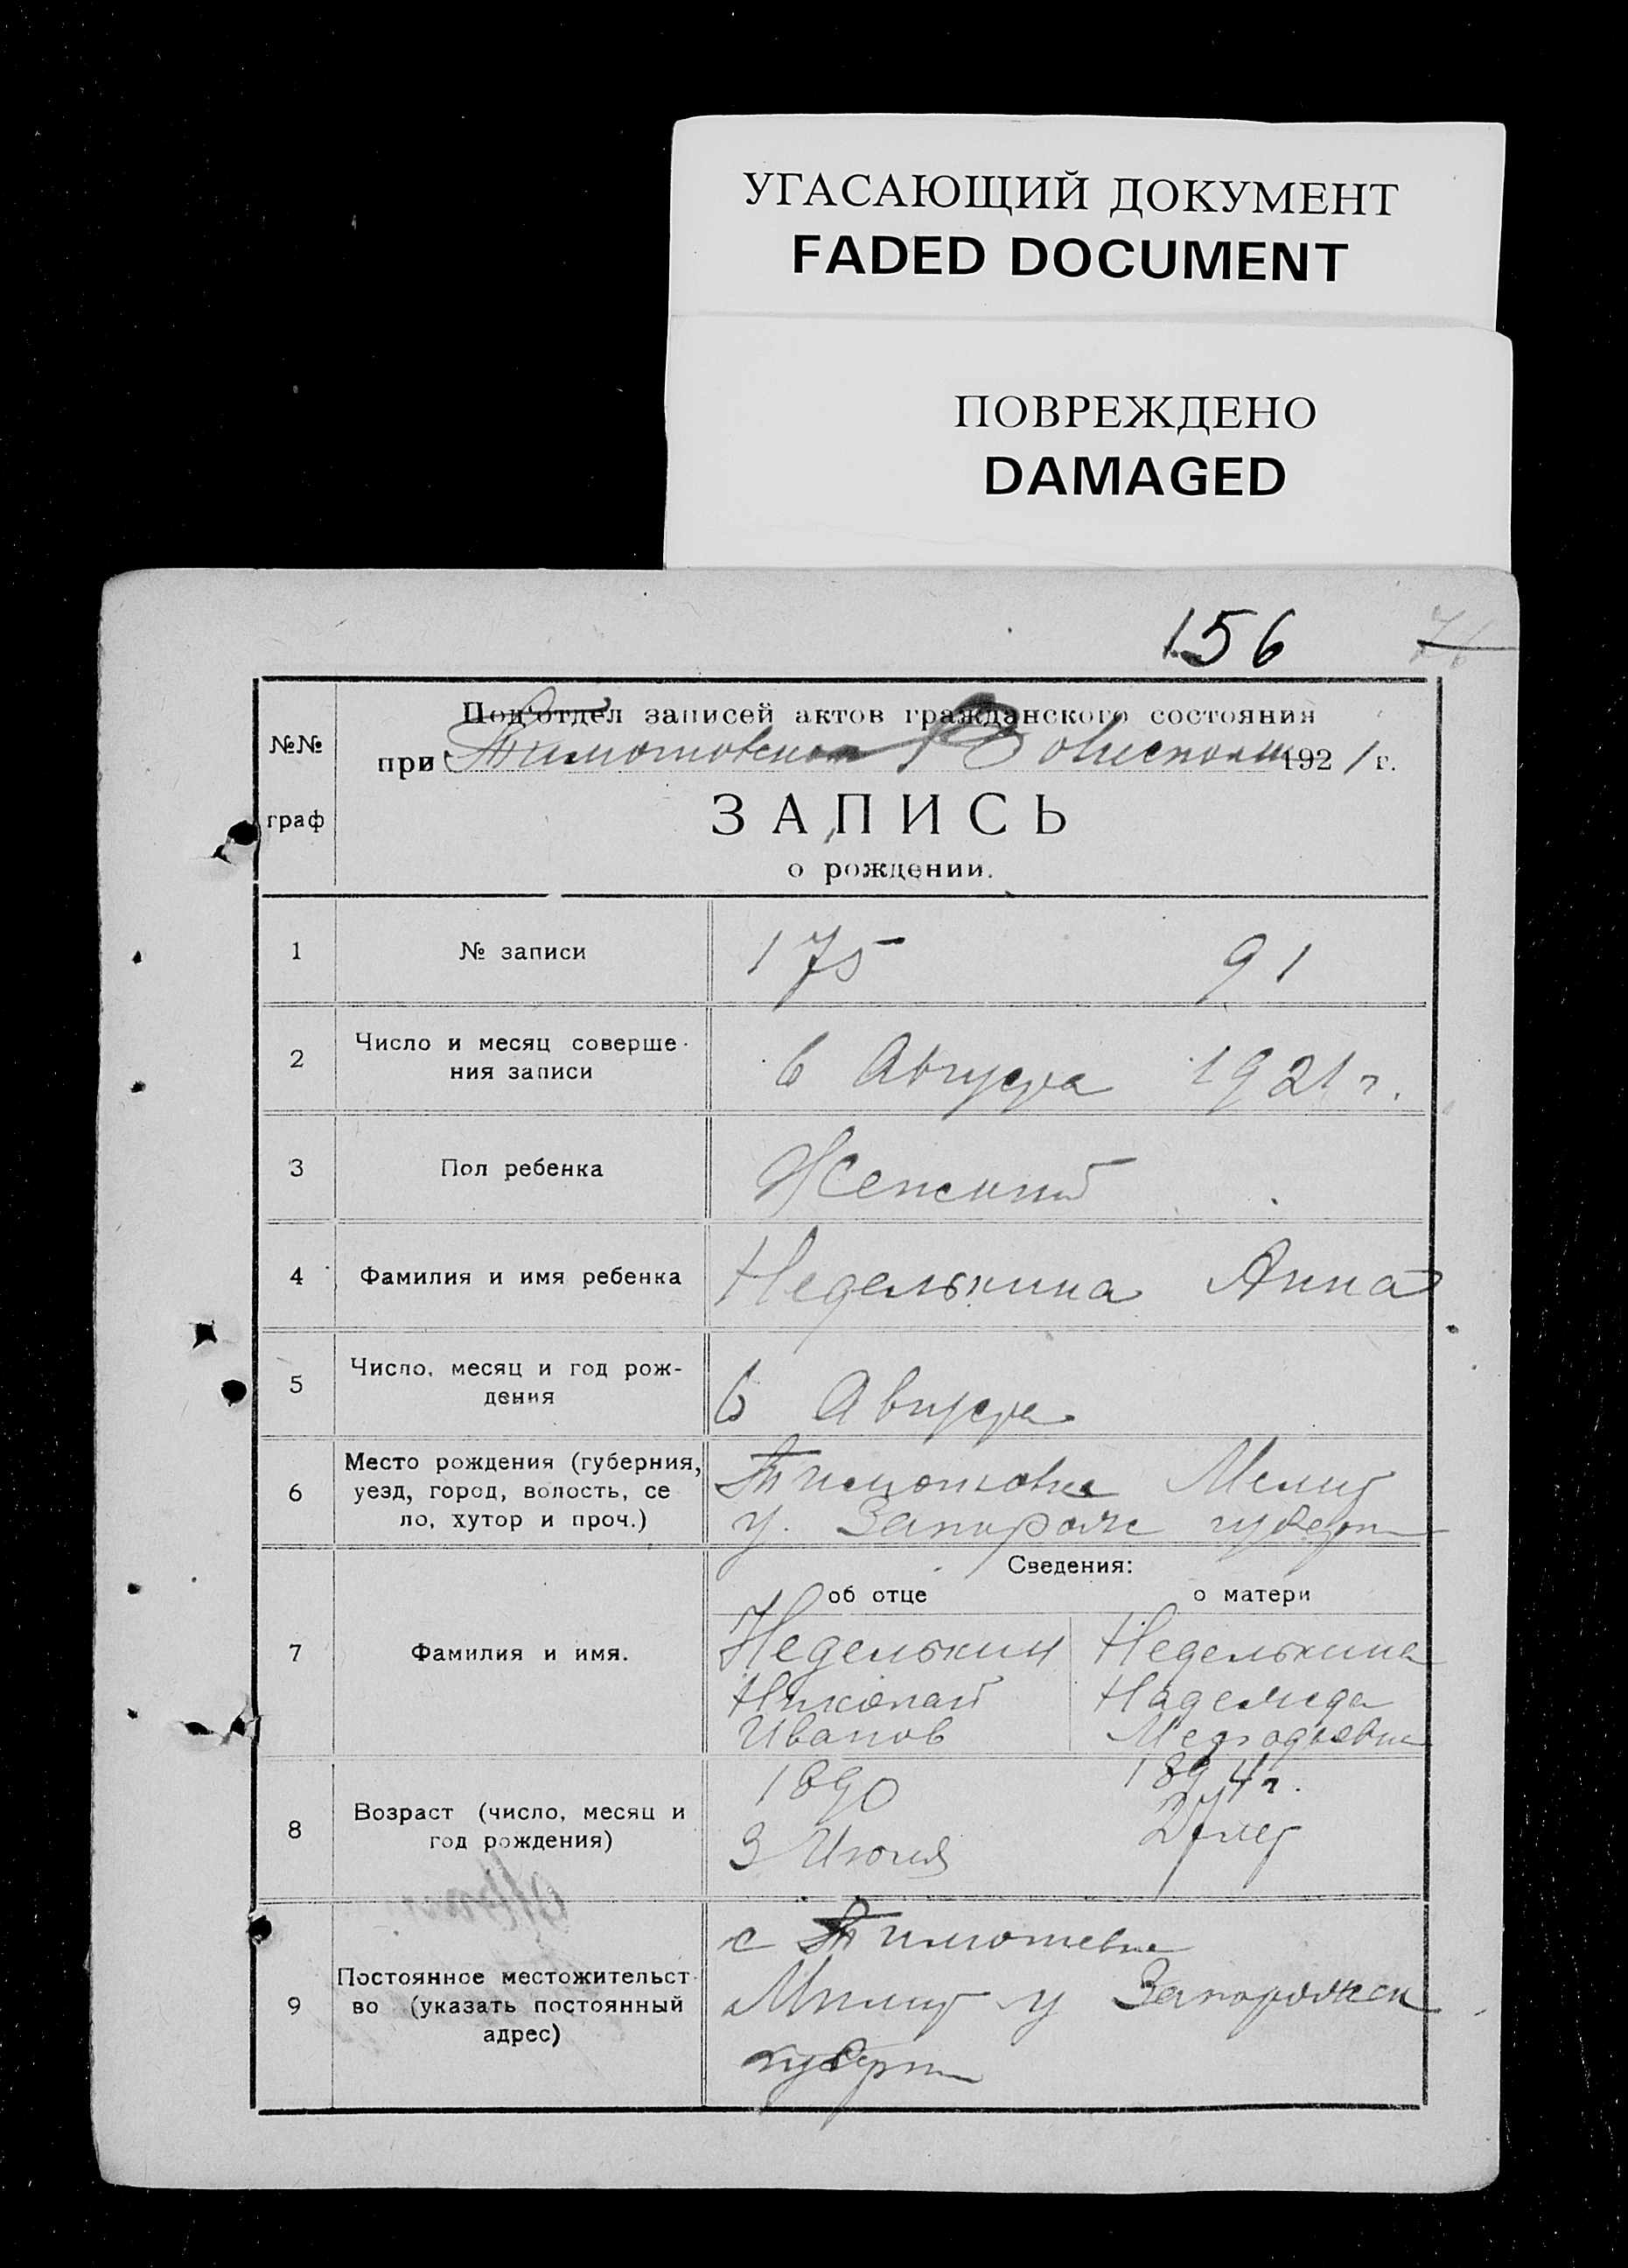 УГАСАЮЩИЙ ДОКУМЕНТ
FADED DOCUMENT
ПОВРЕЖДЕНО
DAMAGED
156
№№
граф
Под'отдел записей актов гражданского состояния
при Тимошовском Волисполк 1921 г.
ЗАПИСЬ
о рождении.
1 № записи 175 91
2 Число и месяц соверше-
ния записи 6 Августа 1921 г.
3 Пол ребенка Женский
4 Фамилия и имя ребенка Неделькина Анна
5 Число, месяц и год рож-
дения 6 Августа
6 Место рождения (губерния,
уезд, город, волость, се
ло, хутор и проч.)
Тимошовка Мелит
у. Запорож губерн
Сведения:
об отце о матери
7 Фамилия и имя.
Неделькин Неделькина
Николай Надежда
Иванов Мефодьевна
8 Возраст (число, месяц и
год рождения)
1890 1894 г.
3 Июня 27 лет
9 Постоянное местожительст
во (указать постоянный
адрес)
с Тимошевка
Мелит у Запорожск
губерн